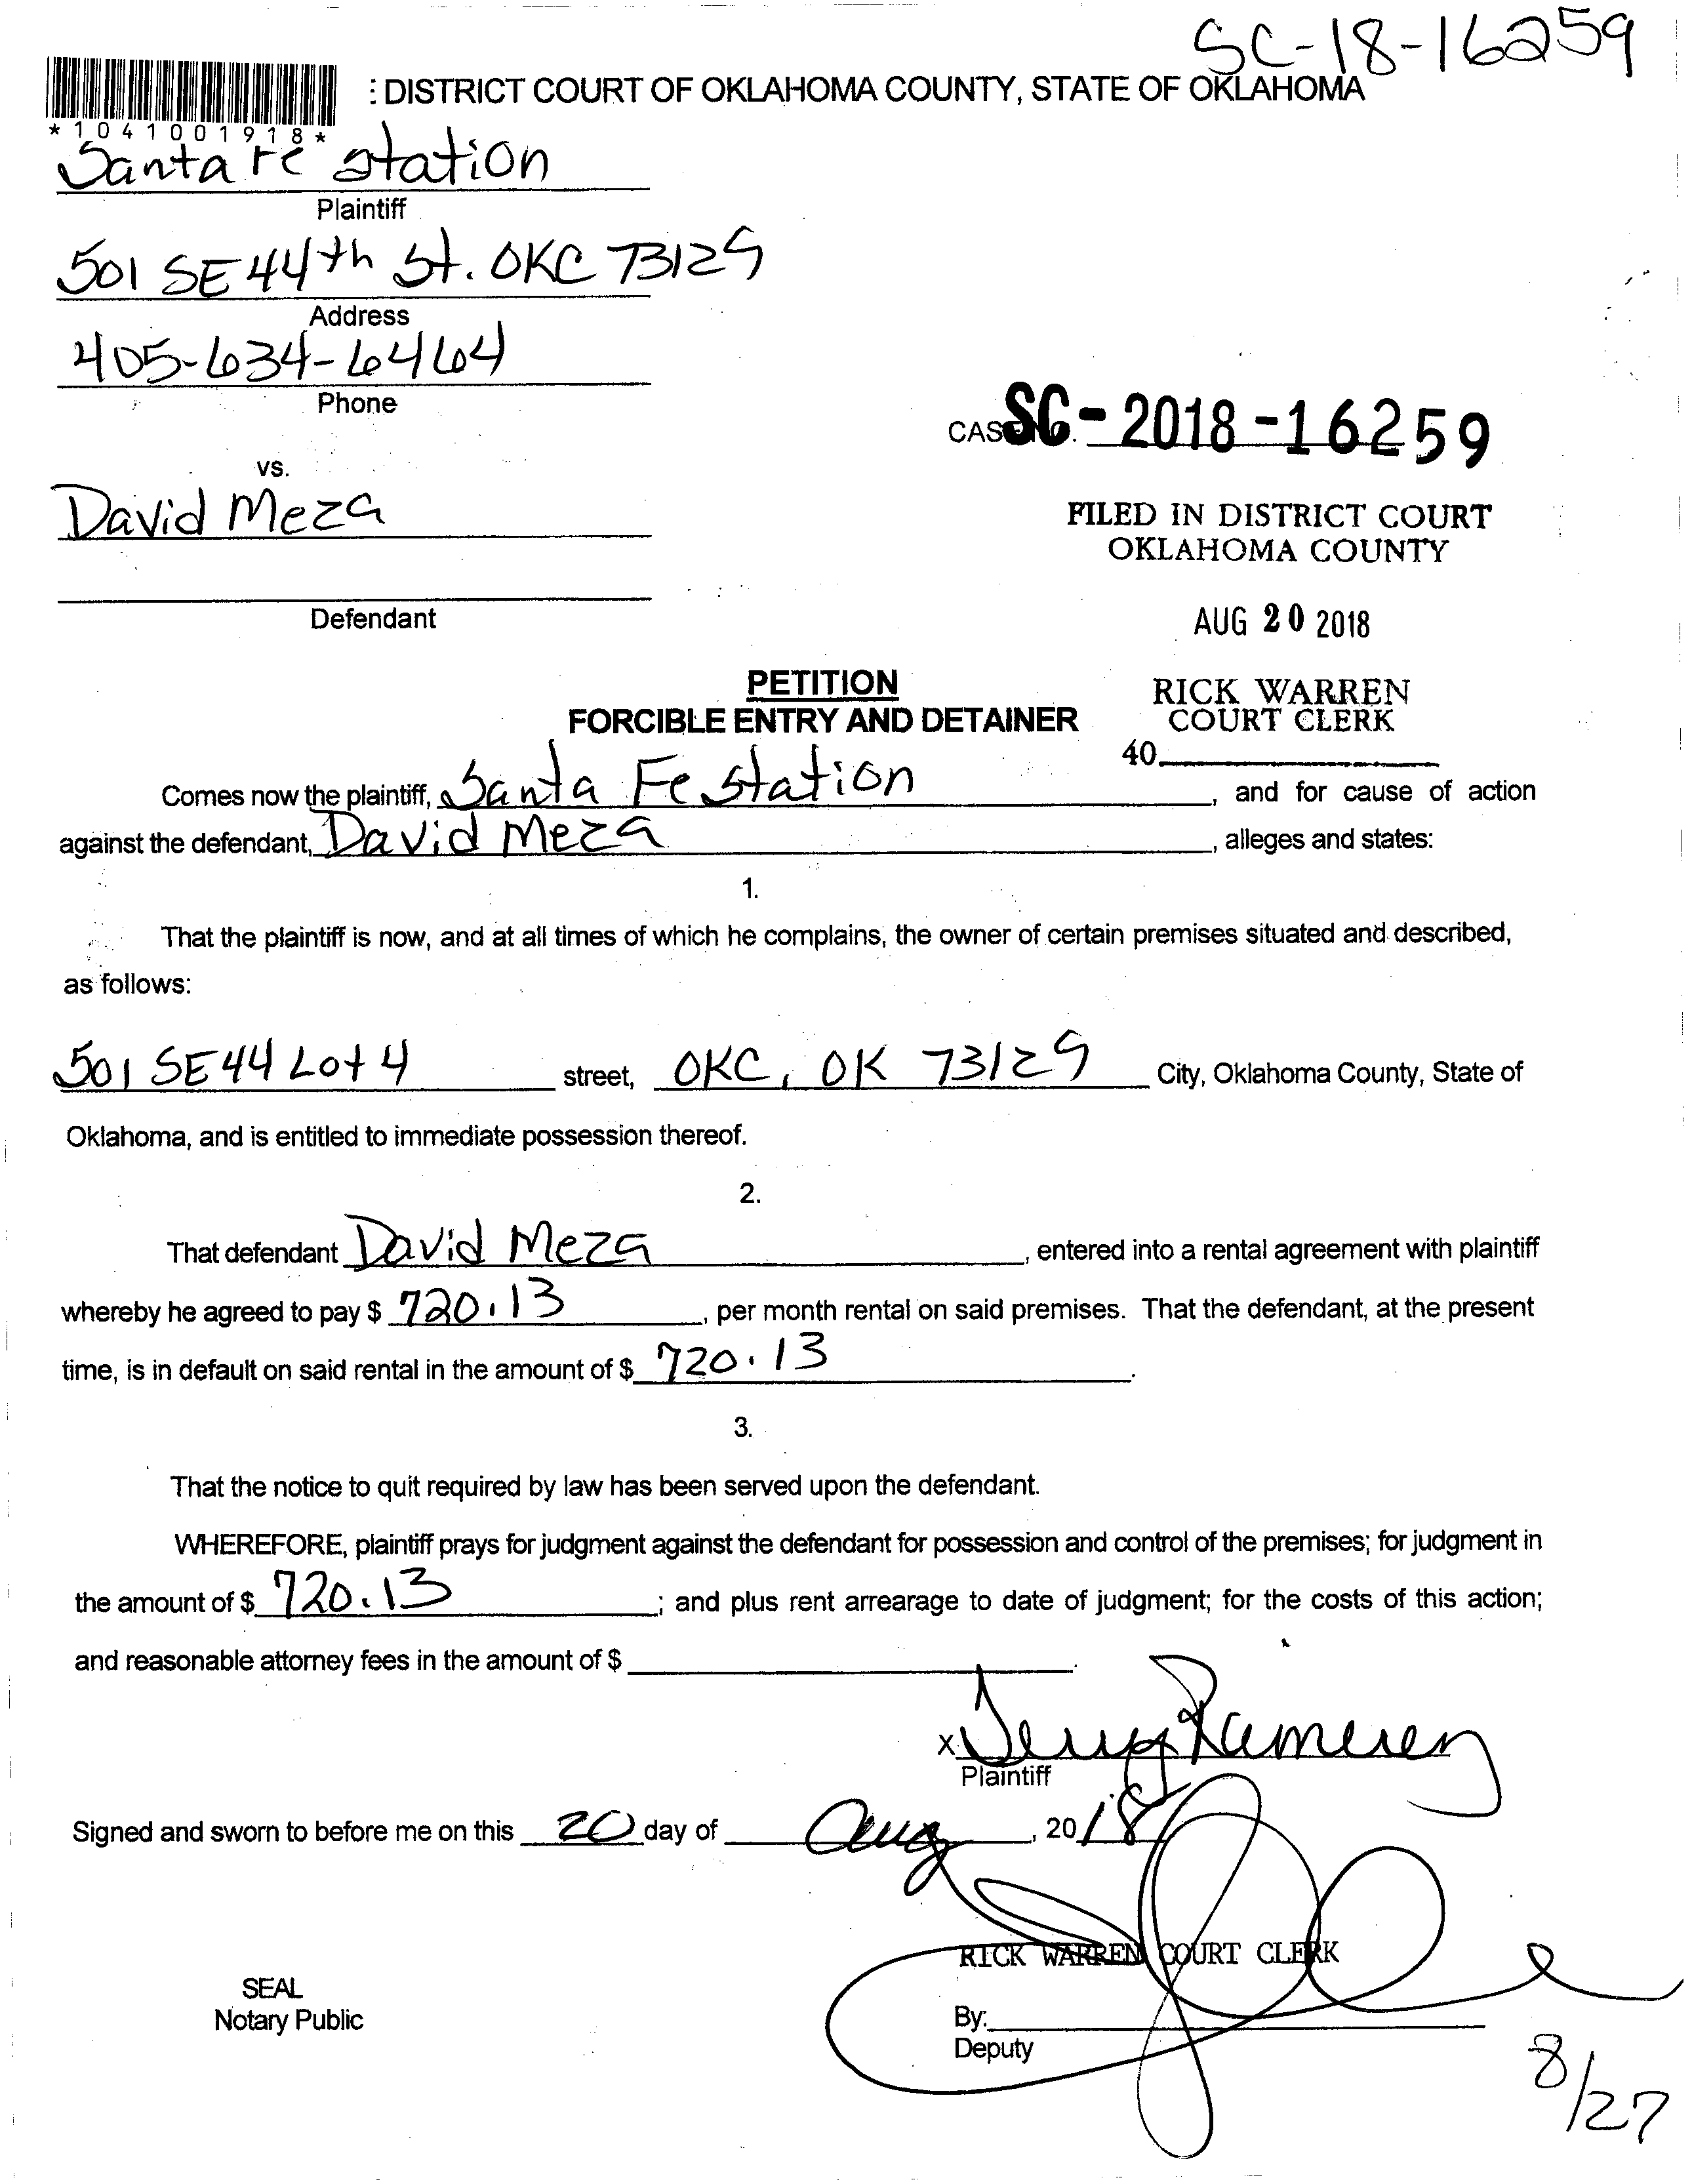 SC-18-16259
: DISTRICT COURT OF OKLAHOMA COUNTY, STATE OF OKLAHOMA
*1041001918*
Santa Fe Station
Plaintiff
501 SE 44th St. OKC 73129
Address
405-634-6464
Phone
CASE NO. SC-2018-16259
vs.
David Meza
FILED IN DISTRICT COURT
OKLAHOMA COUNTY
Defendant
AUG 20 2018
PETITION
FORCIBLE ENTRY AND DETAINER
RICK WARREN
COURT CLERK
40
Comes now the plaintiff, Santa Fe Station, and for cause of action
against the defendant, David Meza, alleges and states:
1.
That the plaintiff is now, and at all times of which he complains, the owner of certain premises situated and described,
as follows:
501 SE 44 Lot 4 street, OKC, OK 73129 City, Oklahoma County, State of
Oklahoma, and is entitled to immediate possession thereof.
2.
That defendant David Meza, entered into a rental agreement with plaintiff
whereby he agreed to pay $ 720.13, per month rental on said premises. That the defendant, at the present
time, is in default on said rental in the amount of $ 720.13.
3.
That the notice to quit required by law has been served upon the defendant.
WHEREFORE, plaintiff prays for judgment against the defendant for possession and control of the premises; for judgment in
the amount of $ 720.13; and plus rent arrearage to date of judgment; for the costs of this action;
and reasonable attorney fees in the amount of $ .
X
Plaintiff
Signed and sworn to before me on this 20 day of Aug, 2018
RICK WARREN COURT CLERK
SEAL
Notary Public
By:
Deputy
8/27